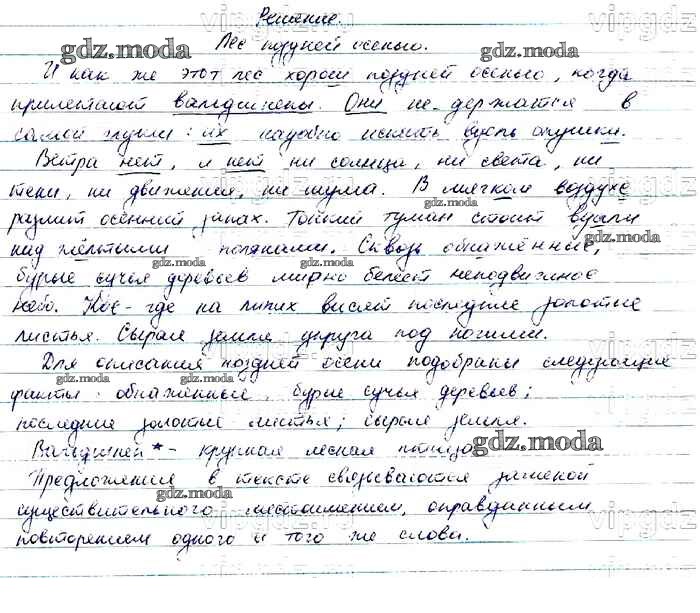 Решение.
Лес поздней осенью.
И как же этот лес хорош поздней осенью, когда
прилетают вальдшнепы. Они не держатся в
самой глуши: их надобно искать вдоль опушки.
Ветра нет, и нет ни солнца, ни света, ни
тени, ни движения, ни шума. В мягком воздухе
разлит осенний запах. Тонкий туман стоит вдали
над жёлтыми полянами. Сквозь обнажённые,
бурые сучья деревьев мирно белеет неподвижное
небо. Кое-где на липах висят последние золотые
листья. Сырая земля упруга под ногами.
Для описания поздней осени подобраны следующие
факты: обнажённые, бурые сучья деревьев;
последние золотые листья; сырая земля.
Вальдшнеп* - крупная лесная птица
Предложения в тексте связываются заменой
существительного местоимением, оправданным
повторением одного и того же слова.
gdz.moda
gdz.moda
gdz.moda
gdz.moda
gdz.moda
gdz.moda
gdz.moda
gdz.moda
gdz.moda
gdz.moda
gdz.moda
gdz.moda